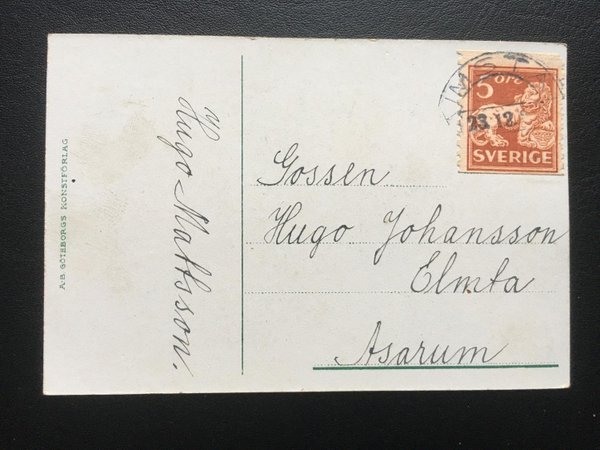 A.B. GÖTEBORGS KONSTFÖRLAG
Hugo Mattsson.
5 ÖRE
SVERIGE
23.12
Gossen
Hugo Johansson
Elmta
Asarum